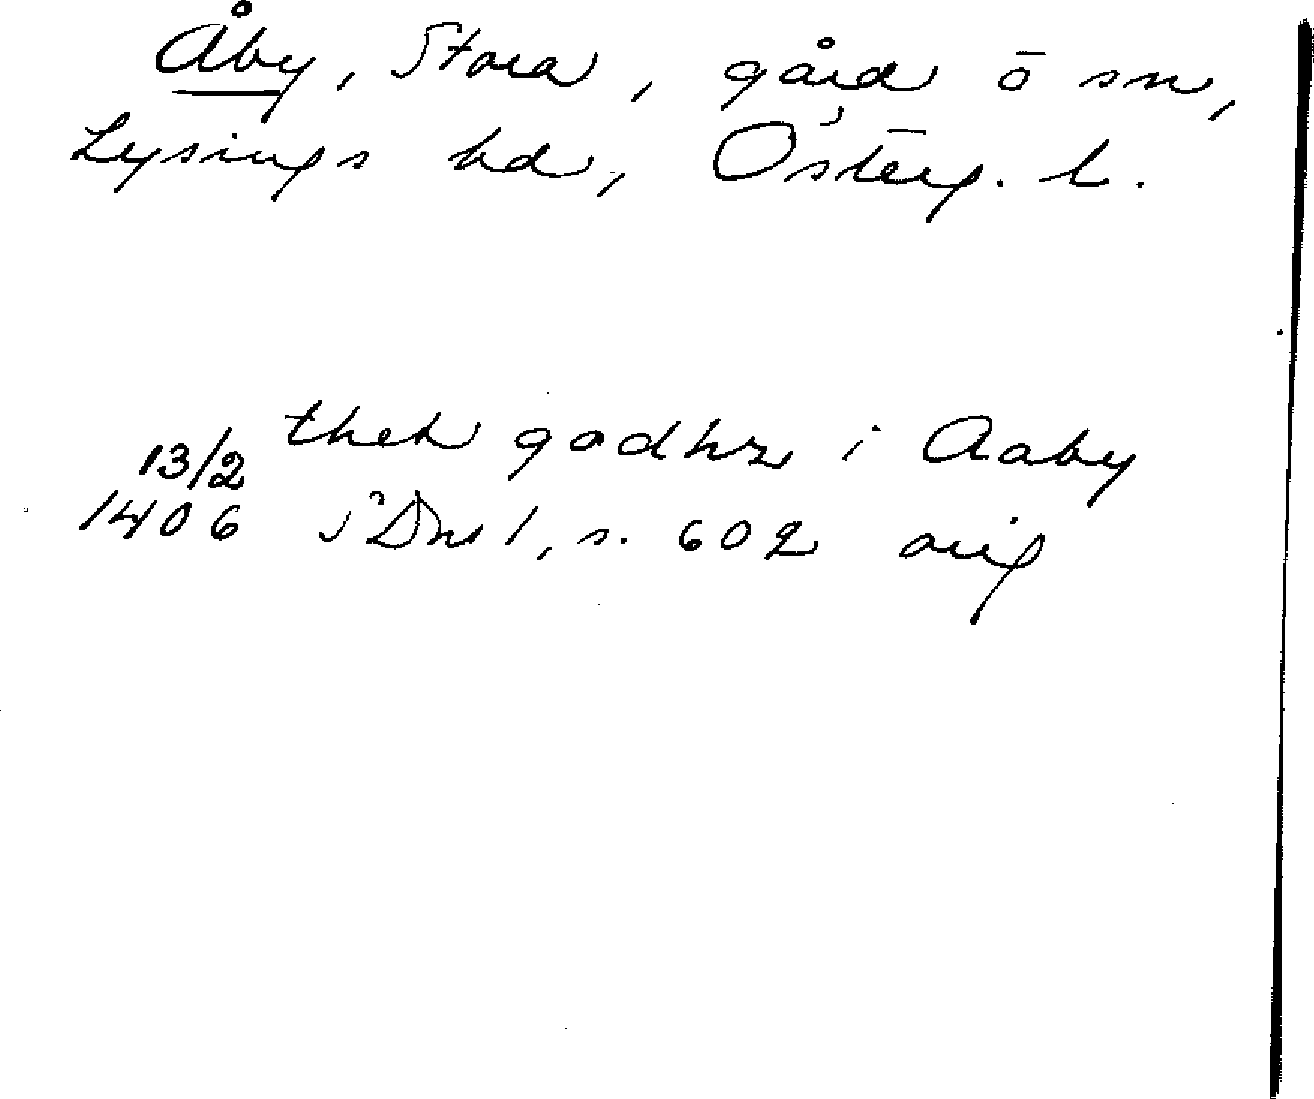 Åby, Stora, gård o sn,
Lysings hd, Österg. l.
theth godhz i Aaby
13/2
1406 SDns 1, s. 602 orig